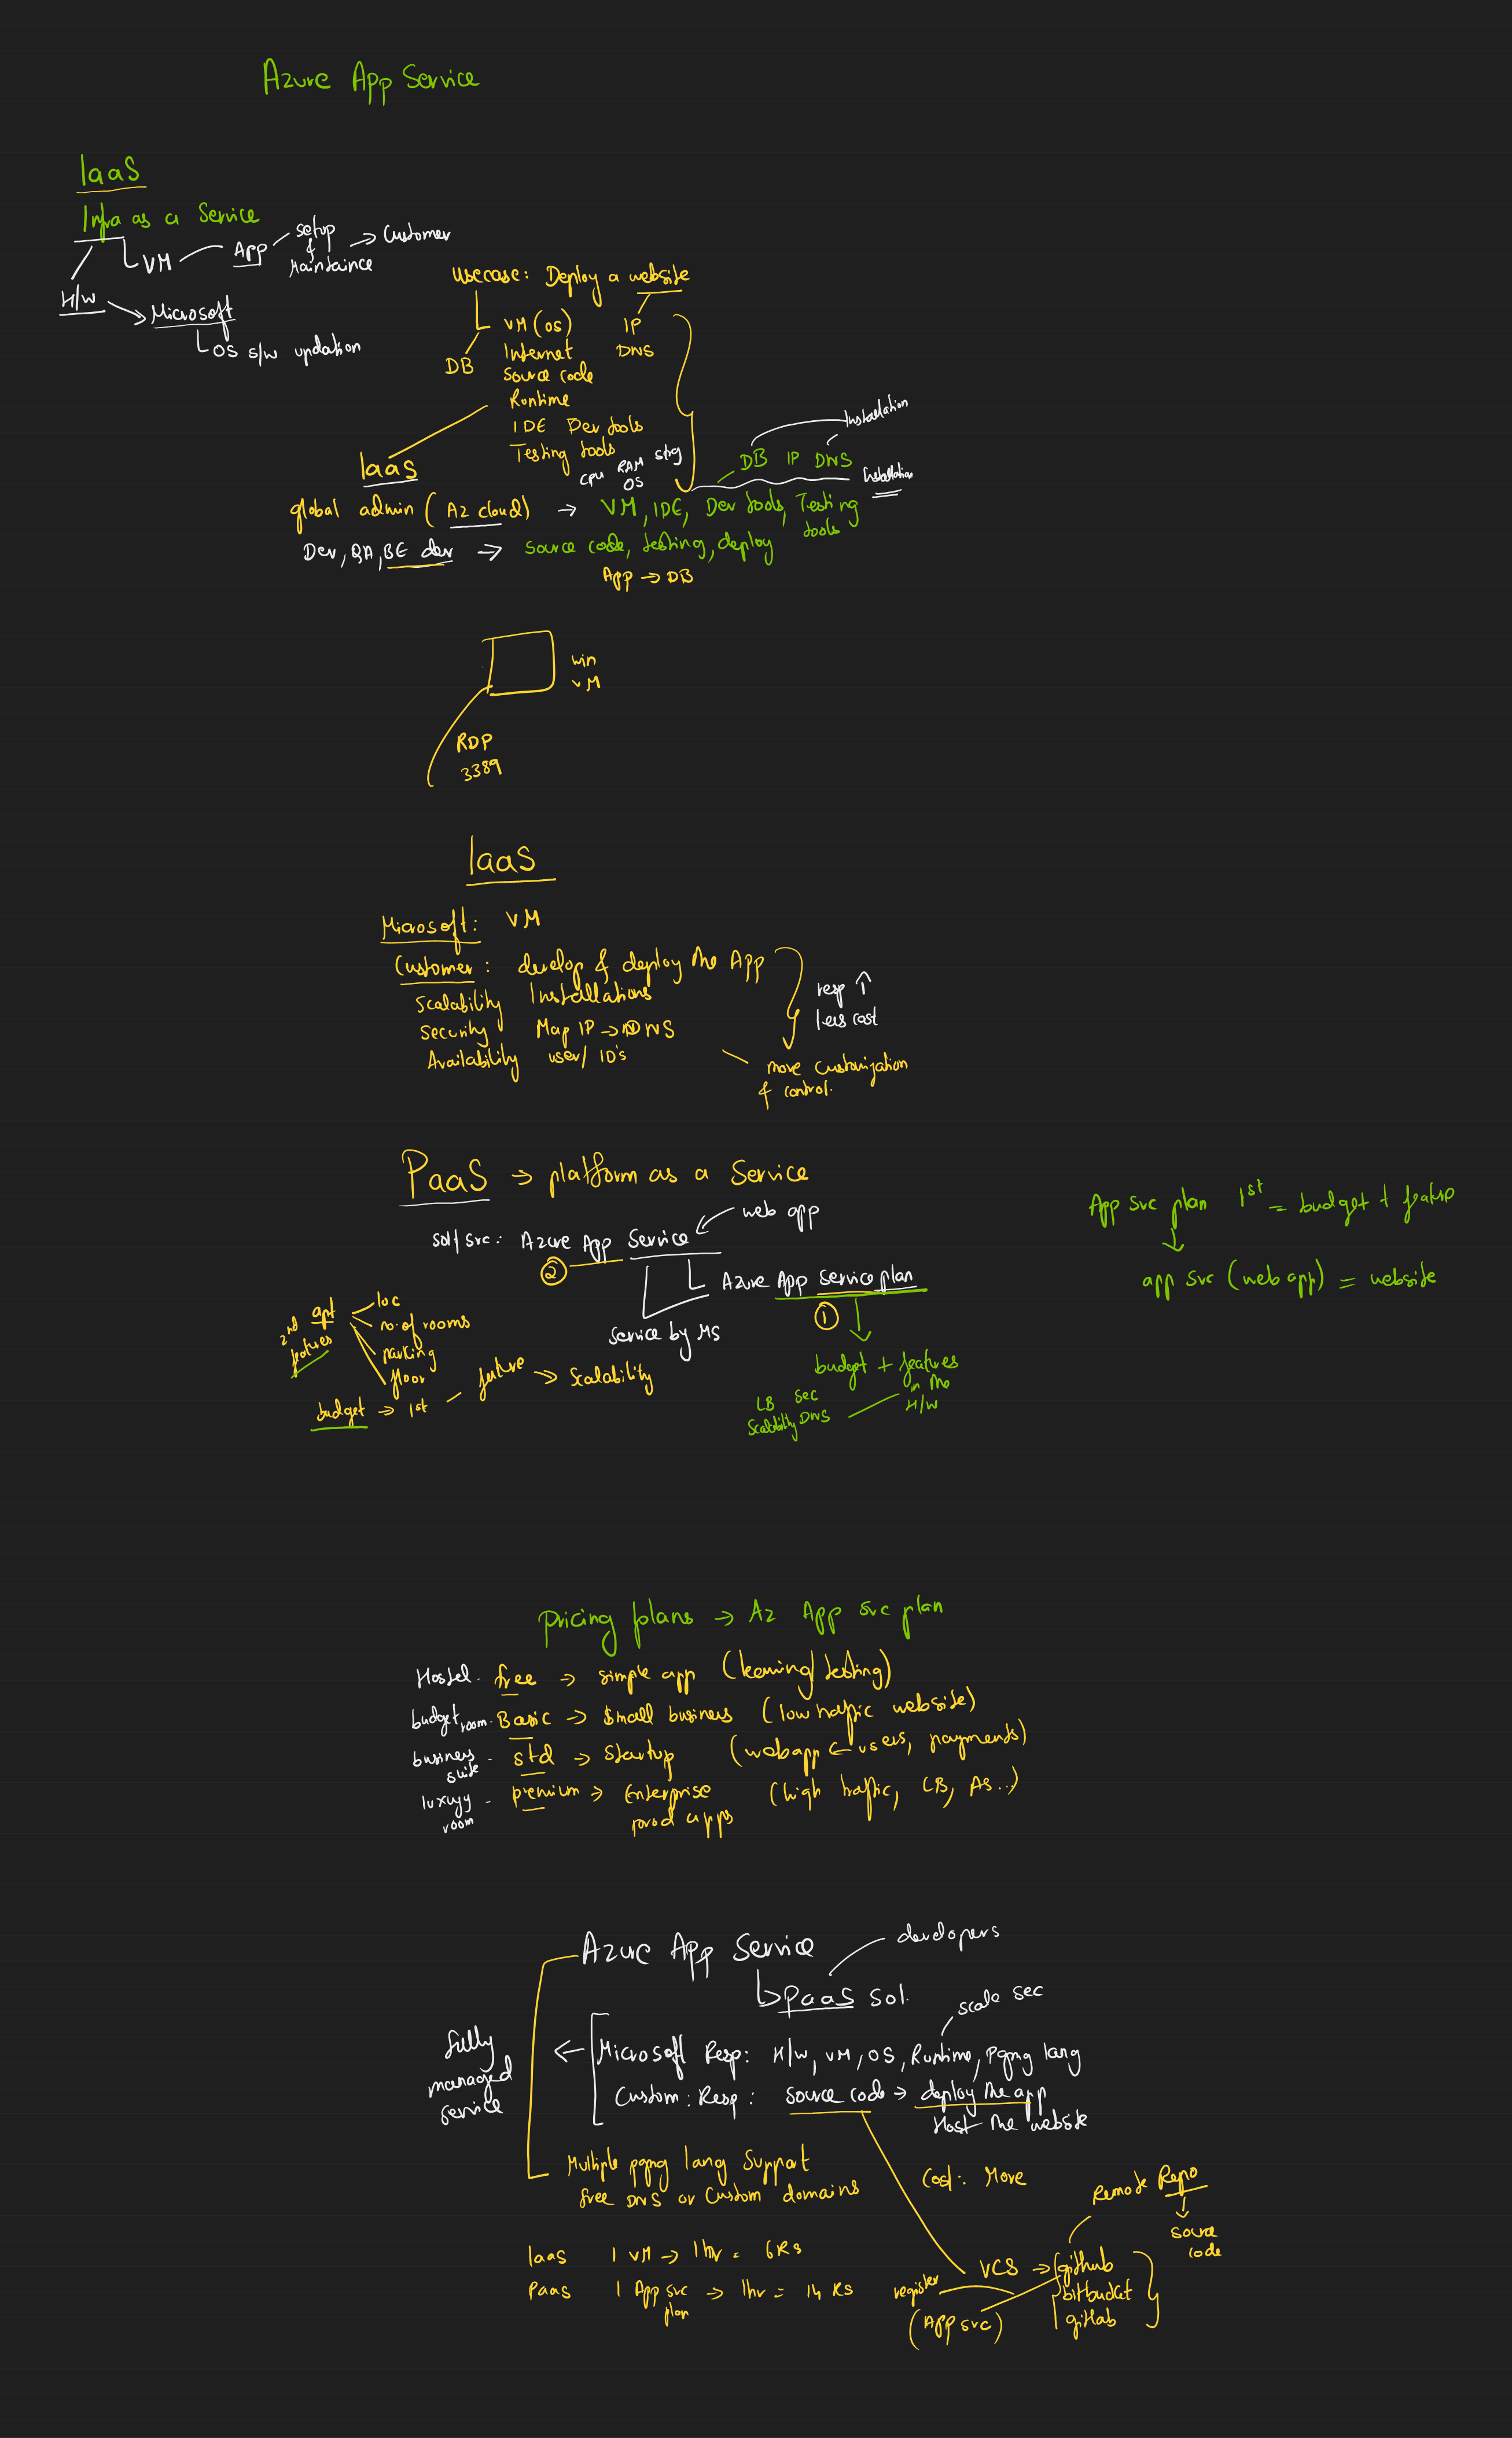 Azure App Service
IaaS
Infra as a Service
VM
App
setup
&
Maintaince
Customer
H/w
Microsoft
OS s/w updation
Usecase: Deploy a website
VM (OS)
IP
Internet
DNS
DB
Source code
Runtime
IDE Dev tools
Testing tools
Installation
IaaS
CPU RAM strg
OS
DB IP DNS
Installation
global admin (AZ cloud) → VM, IDE, Dev tools, Testing tools
Dev, QA, BE dev → source code, testing, deploy
App → DB
win
VM
RDP
3389
IaaS
Microsoft: VM
Customer: develop & deploy the App
Scalability Installations
Security Map IP → DNS
Availability user/ ID's
resp ↑
less cost
more customization
& control.
PaaS → platform as a Service
web app
sol/ src: Azure App Service
②
Azure App service plan
①
Service by MS
App svc plan 1st = budget + featurs
app svc (web app) = website
2nd
features
apt
loc
no. of rooms
parking
floor
budget → 1st
future → Scalability
budget + features
in the
H/w
LB Sec
Scalability DNS
pricing plans → AZ App svc plan
Hostel - free → simple app (learning/testing)
budget room - Basic → Small business (low traffic website)
business suite - std → startup (webapp ← users, payments)
luxuyy room - premium → Enterprise prod apps (high traffic, LB, AS...)
Azure App Service
developers
PaaS sol.
scale sec
fully
managed
service
Microsoft Resp: H/w, VM, OS, Runtime, Pgmg lang
Custom: Resp: source code → deploy the app
Host the website
Multiple pgmg lang Support
free DNS or Custom domains
Cost: More
Remote Repo
source
code
IaaS 1 VM → 1hr = 6 Rs
PaaS 1 App svc plan → 1hr = 14 RS
VCS → github
bitbucket
gitlab
register
(App svc)